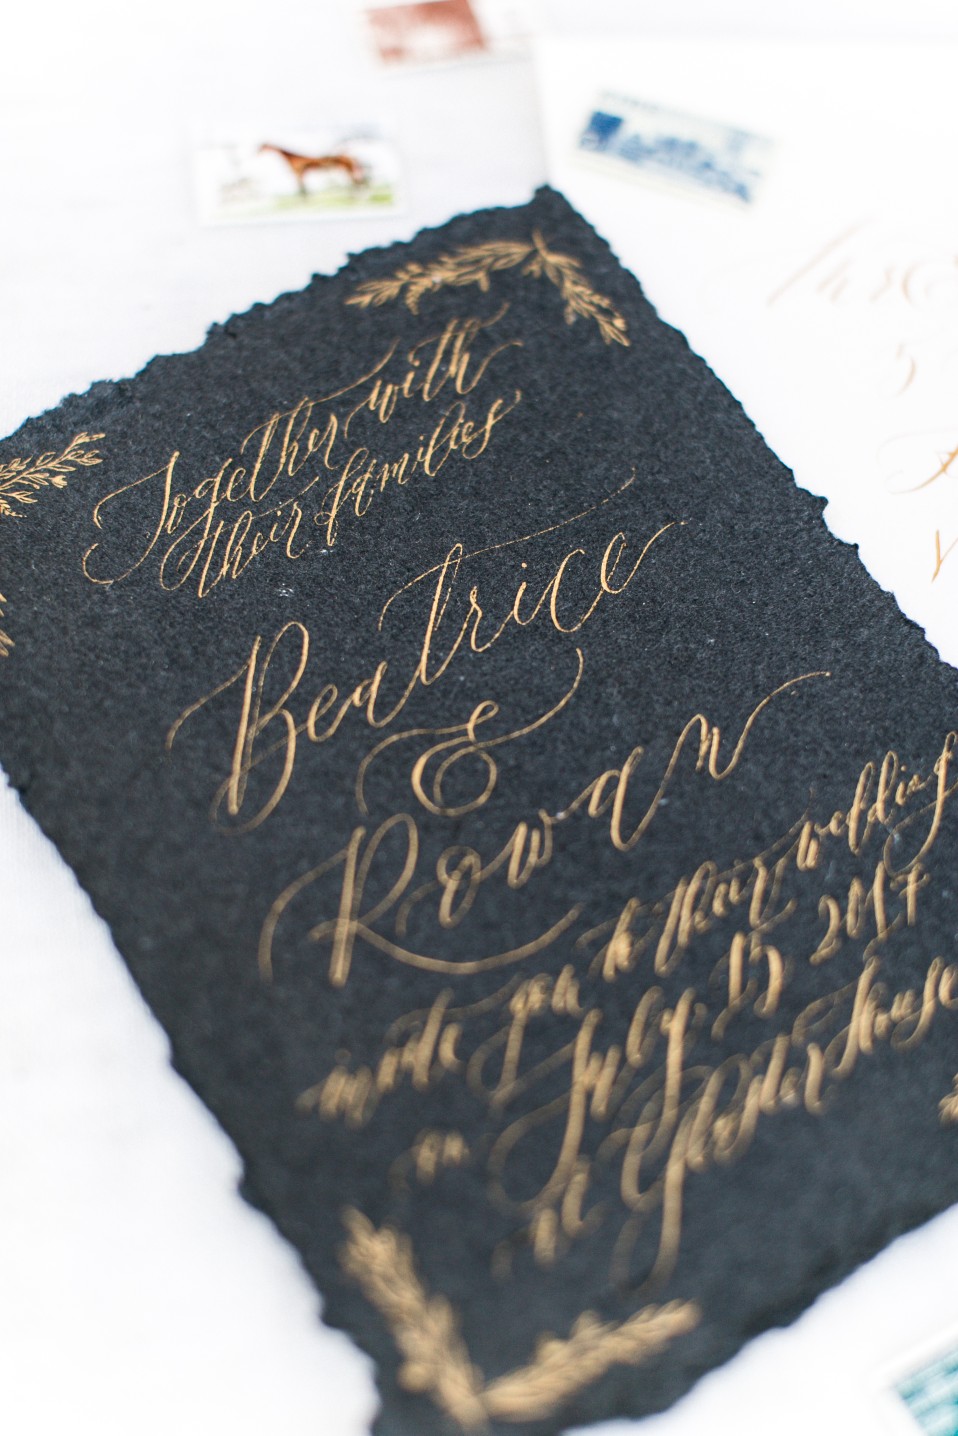 Together with
their families
Beatrice
&
Rowan
invite you to their wedding
on July 15 2017
at Gloster House